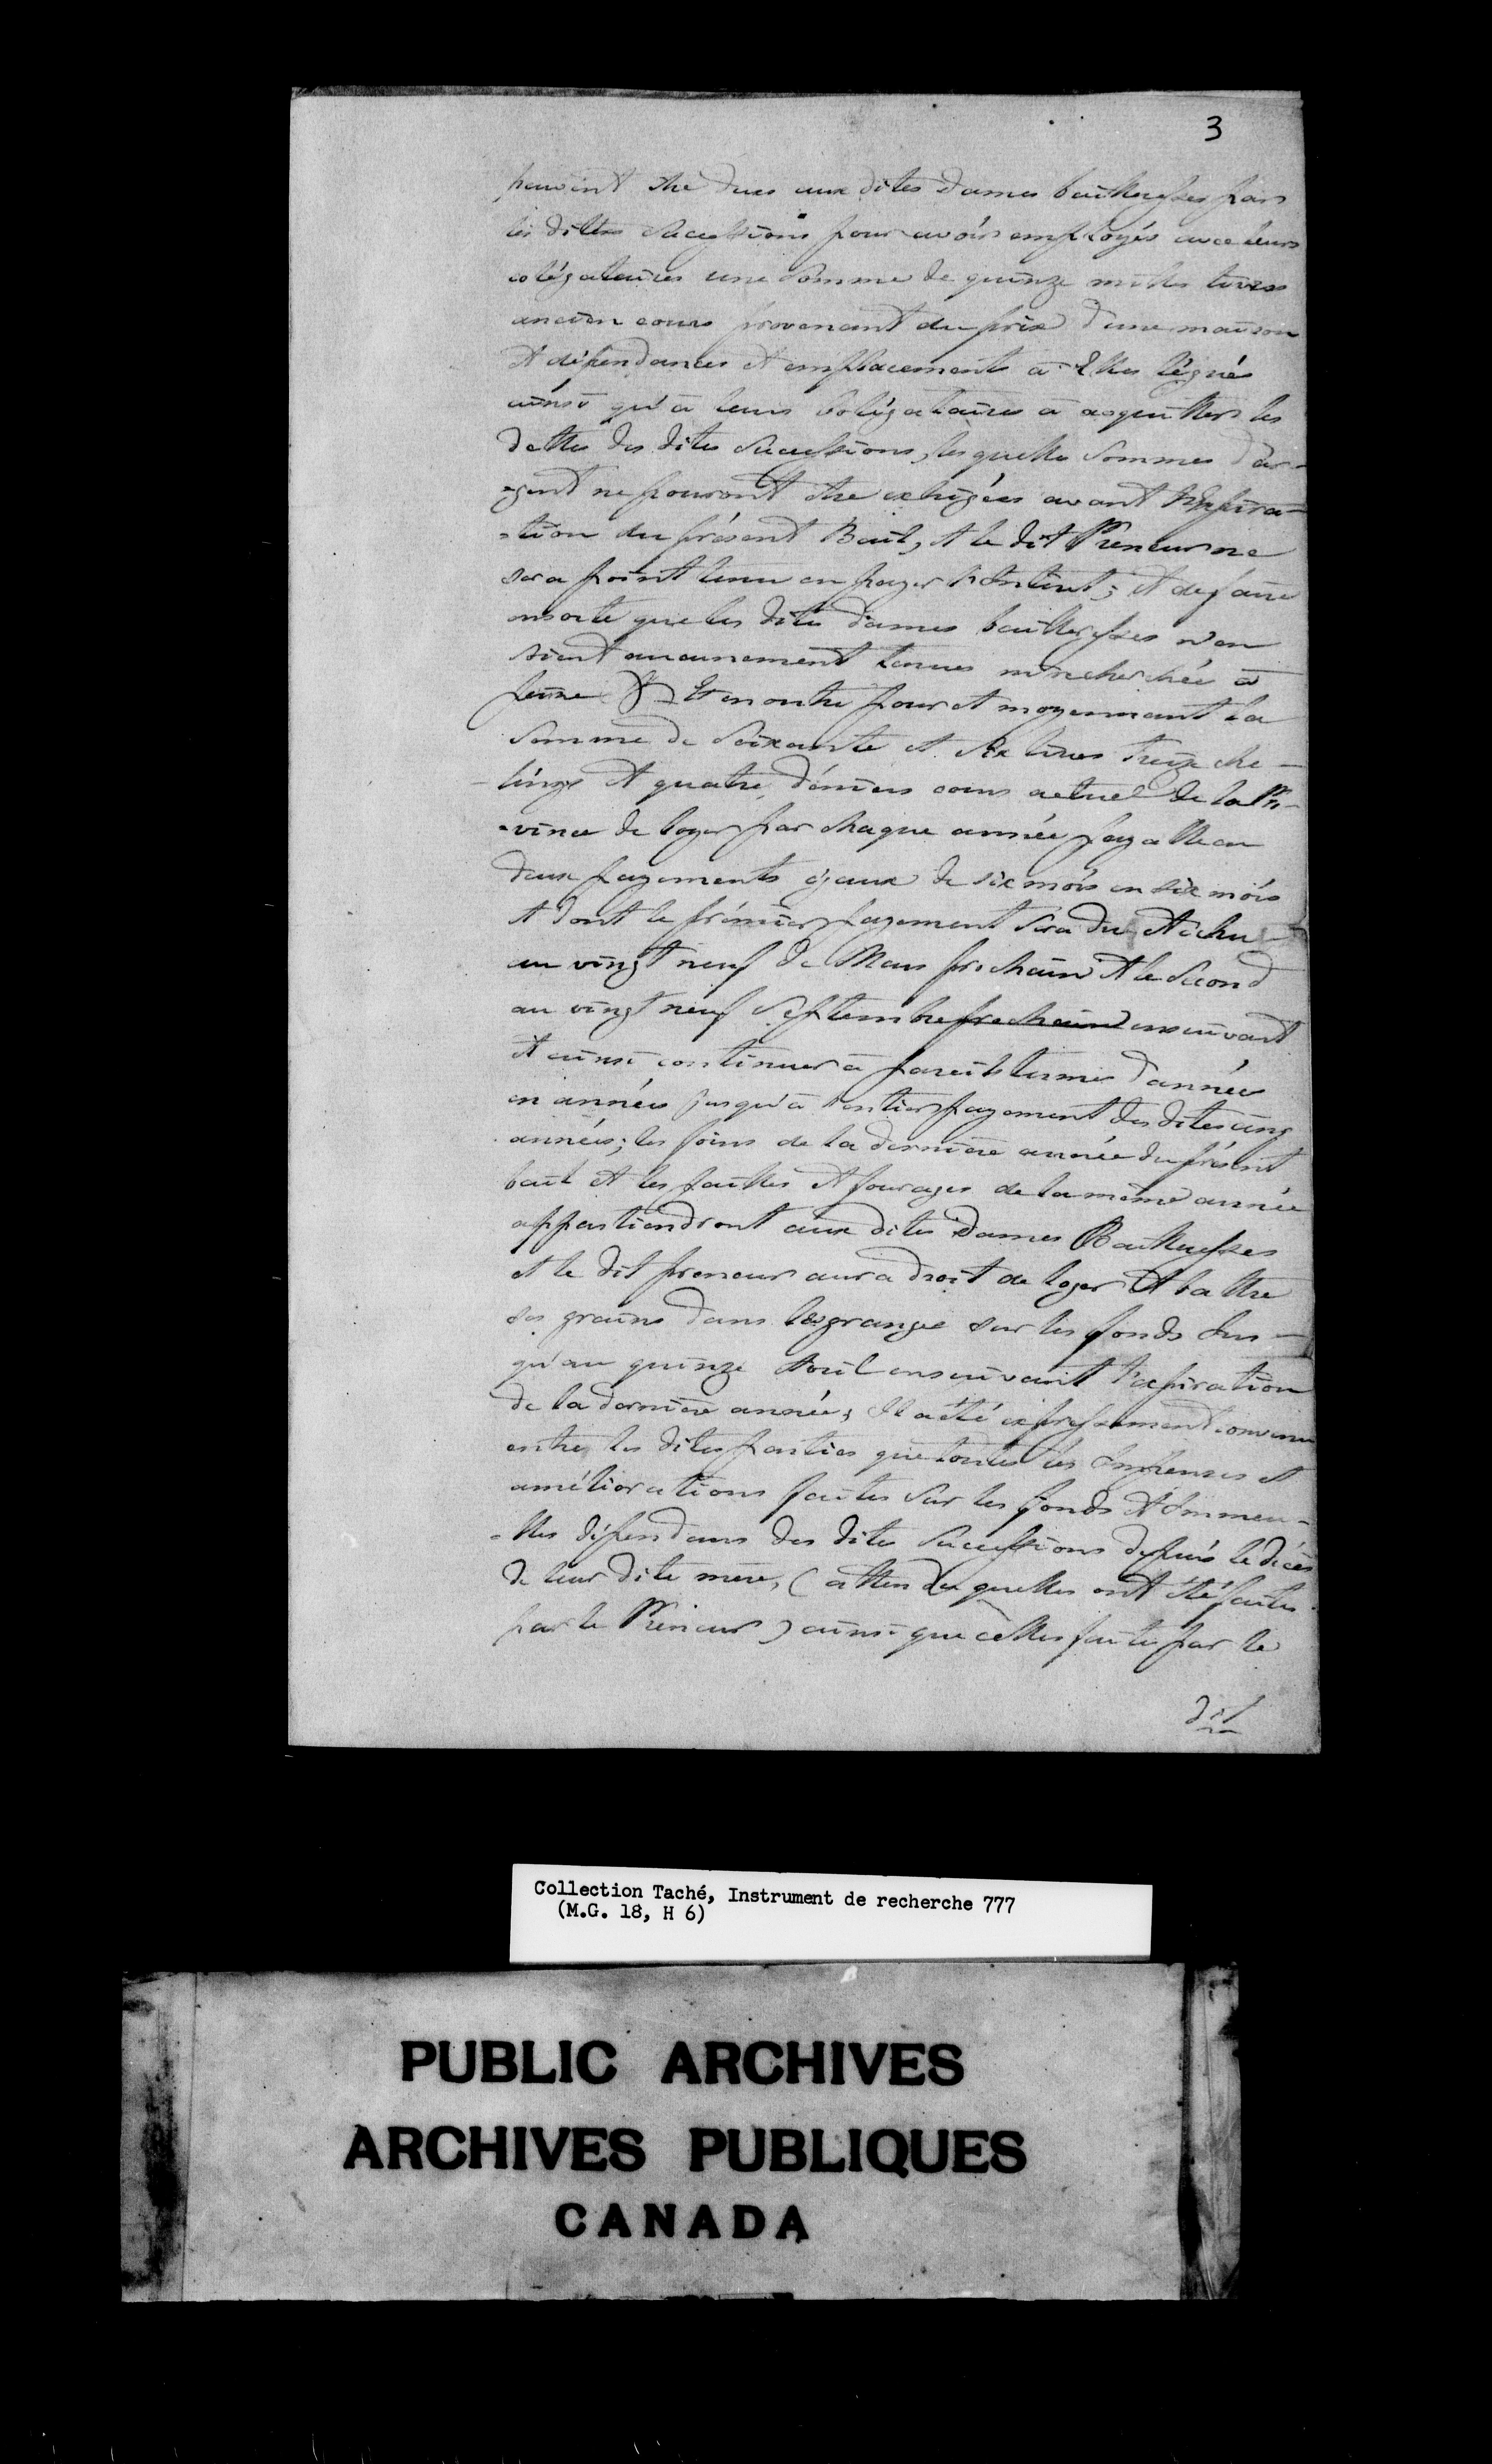 3
peuvent être dues aux dites Dames bailleresses par
les dittes Successions pour avoir employés avec leurs
colégataires une Somme de quinze milles livres
ancien cours provenant du prix d'une maison
et dépendances et emplacements à Elles légués
ainsi qu'à leurs Colégataires à acquitter les
dettes des dites Successions, les quelles Sommes d'ar-
-gent ne pouront être exhigées avant l'Expira-
-tion du présent Bail, et le dit Preneur ne
sera point tenu en payer l'Intérêt; et de faire
ensorte que les dites Dames bailleresses n'en
soient aucunement tenues ni recherchée à
peine &. Et en outre pour et moyennant la
Somme de Soixante et Six livres Treize che-
-lings et quatre déniers cours actuel de la Pro-
-vince de loyer par chaque année payable en
deux payements égaux de six mois en six mois
et dont le prémier payement sera du et échu
au vingt neuf de Mars prochain et le Second
au vingt neuf Septembre prochain ensuivant
et ainsi continuer à pareils termes d'années
en années jusqu'à l'entier payement des dites cinq
années; les foins de la dernière année du présent
bail et les pailles et fourages de la même année
appartiendront aux dites Dames Bailleresses
et le dit preneur aura droit de loger et battre
ses grains dans les granges sur les fonds Jus-
qu'au quinze Avril ensuivant l'expiration
de la dernière année; Il a été expressement convenu
entre les dites parties que toutes les Impenses et
améliorations faites sur les fonds et Immeu-
-bles dépendans des dites Successions depuis le décès
de leur dite mère, (attendu quelles ont été faites
par le Preneur) ainsi que celles faites par le
dit
Collection Taché, Instrument de recherche 777
(M.G. 18, H 6)
PUBLIC ARCHIVES
ARCHIVES PUBLIQUES
CANADA